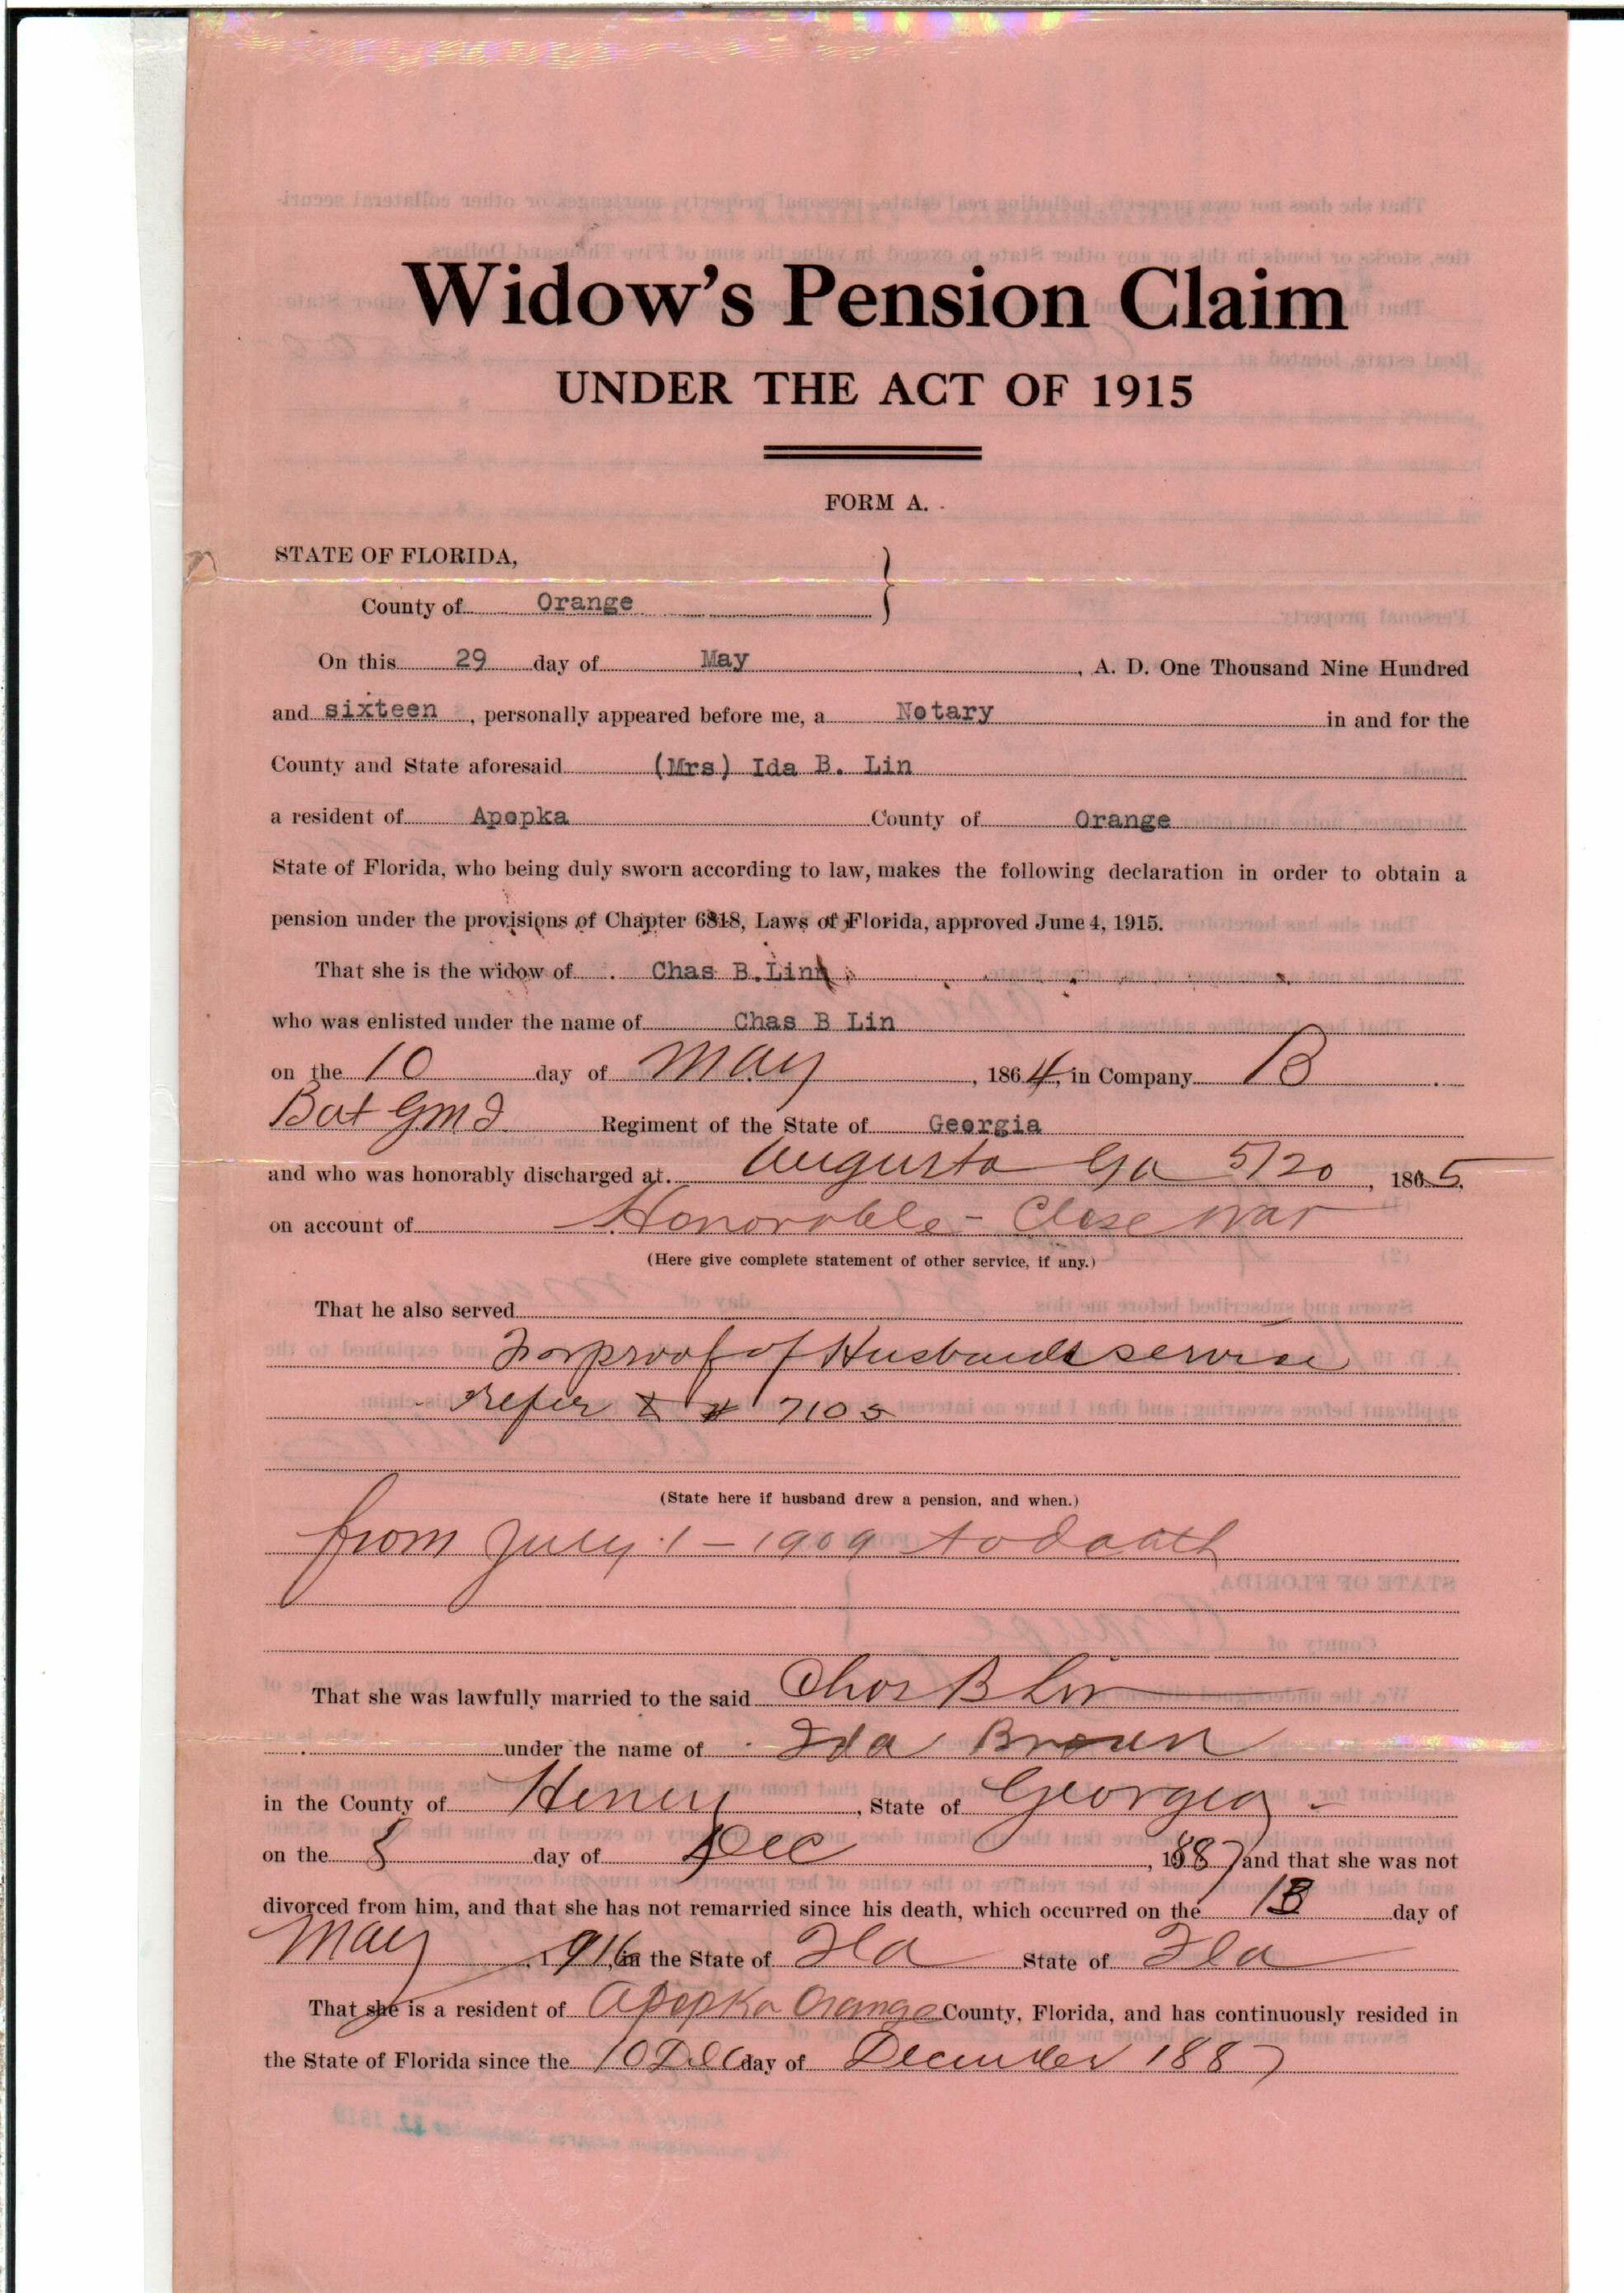 Widow's Pension Claim
UNDER THE ACT OF 1915
FORM A.
STATE OF FLORIDA,
County of Orange
On this 29 day of May, A. D. One Thousand Nine Hundred
and sixteen, personally appeared before me, a Notary in and for the
County and State aforesaid (Mrs) Ida B. Lin
a resident of Apopka County of Orange
State of Florida, who being duly sworn according to law, makes the following declaration in order to obtain a
pension under the provisions of Chapter 6818, Laws of Florida, approved June 4, 1915.
That she is the widow of Chas B. Lin
who was enlisted under the name of Chas B Lin
on the 10 day of May, 1864, in Company B
Bat Regiment of the State of Georgia
and who was honorably discharged at. Augusta Ga 5/20, 1865.
on account of Honorable - Close War
(Here give complete statement of other service, if any.)
That he also served
For proof of Husbands service
Refer to # 7105
(State here if husband drew a pension, and when.)
from July 1 - 1909 to death
That she was lawfully married to the said Chas B Lin
under the name of Ida Brown
in the County of Henry, State of Georgia -
on the 8 day of Dec, 1887 and that she was not
divorced from him, and that she has not remarried since his death, which occurred on the 18 day of
May, 1916, in the State of Fla State of Fla
That she is a resident of Apopka Orange County, Florida, and has continuously resided in
the State of Florida since the 10 Dec day of December 1887